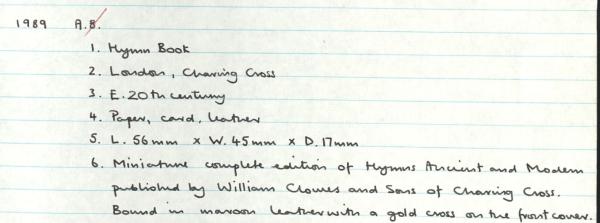 1989 A.B.
1. Hymn Book
2. London, Charing Cross
3. E. 20th century
4. Paper, card, leather
5. L. 56mm x W. 45mm x D. 17mm
6. Miniature complete edition of Hymns Ancient and Modern
published by William Clowes and Sons of Charing Cross.
Bound in maroon leather with a gold cross on the front cover.